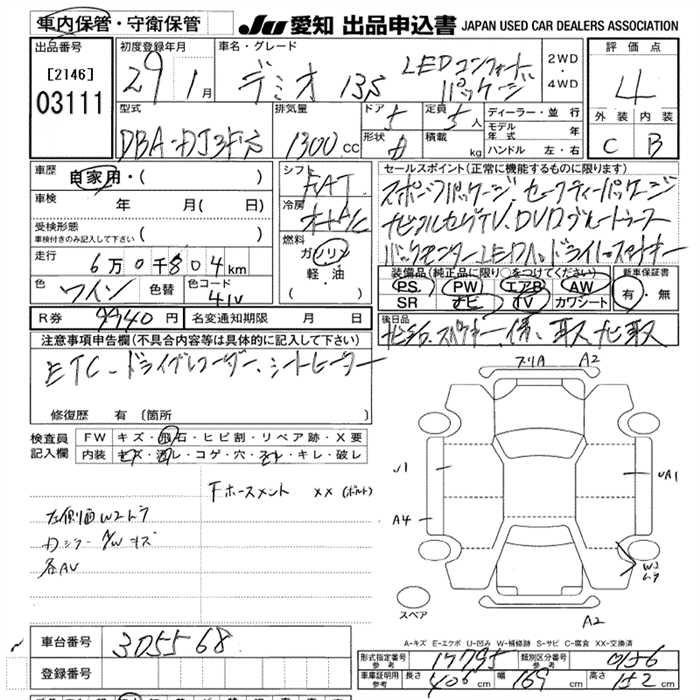 車内保管・守衛保管
JU 愛知 出品申込書 JAPAN USED CAR DEALERS ASSOCIATION
出品番号 初度登録年月 車名・グレード 評価点
[2146]
03111
29年 1月 デミオ 13S LEDコンフォートパッケージ 2WD・4WD 4
型式 排気量 ドア 定員 ディーラー・並行 外装 内装
DBA-DJ3FS 1300cc 5 5人 モデル年式 年 C B
形状 積載 kg ハンドル 左・右
車歴 自家用・( ) シフト FAT セールスポイント(正常に機能するものに限ります)
車検 年 月( 日) 冷房 オートA/C スポーツパッケージ、セーフティーパッケージ
受検形態 ナビフルセグTV、DVDブルートゥース
車検付きのみ記入して下さい( ) 燃料 ガソリン
走行 6万0千804km 軽・油 ( )
装備品(純正品に限り○をつけてください) 新車保証書
色 ワイン 色替 色コード 41V PS PW エアB AW 有・無
SR ナビ TV カワシート
R券 9940円 名変通知期限 月 日 後日品
注意事項申告欄(不具合内容等は具体的に記入して下さい)
ETC、ドライブレコーダー、シートヒーター
修復歴 有 (箇所
検査員記入欄 FW キズ・飛石・ヒビ割・リペア跡・X要
内装 キズ・汚レ・コゲ・穴・スレ・キレ・破レ
A2
Fホースメント XX(ボルト)
左側面W2ムラ
各AV
A4
UA1
W2
ムラ
スペア
A2
A-キズ E-エクボ U-凹み W-補修跡 S-サビ C-腐食 XX-交換済
車台番号 305568
登録番号
形式指定番号 参考 17795 類別区分番号 参考 0156
車庫証明用 参考 長さ 406cm 幅 169cm 高さ 152cm